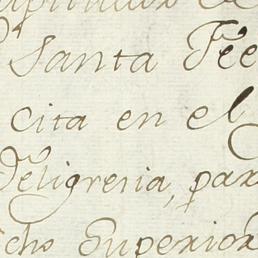 Santa Fee
cita en el
feligresia, par
cho Superior